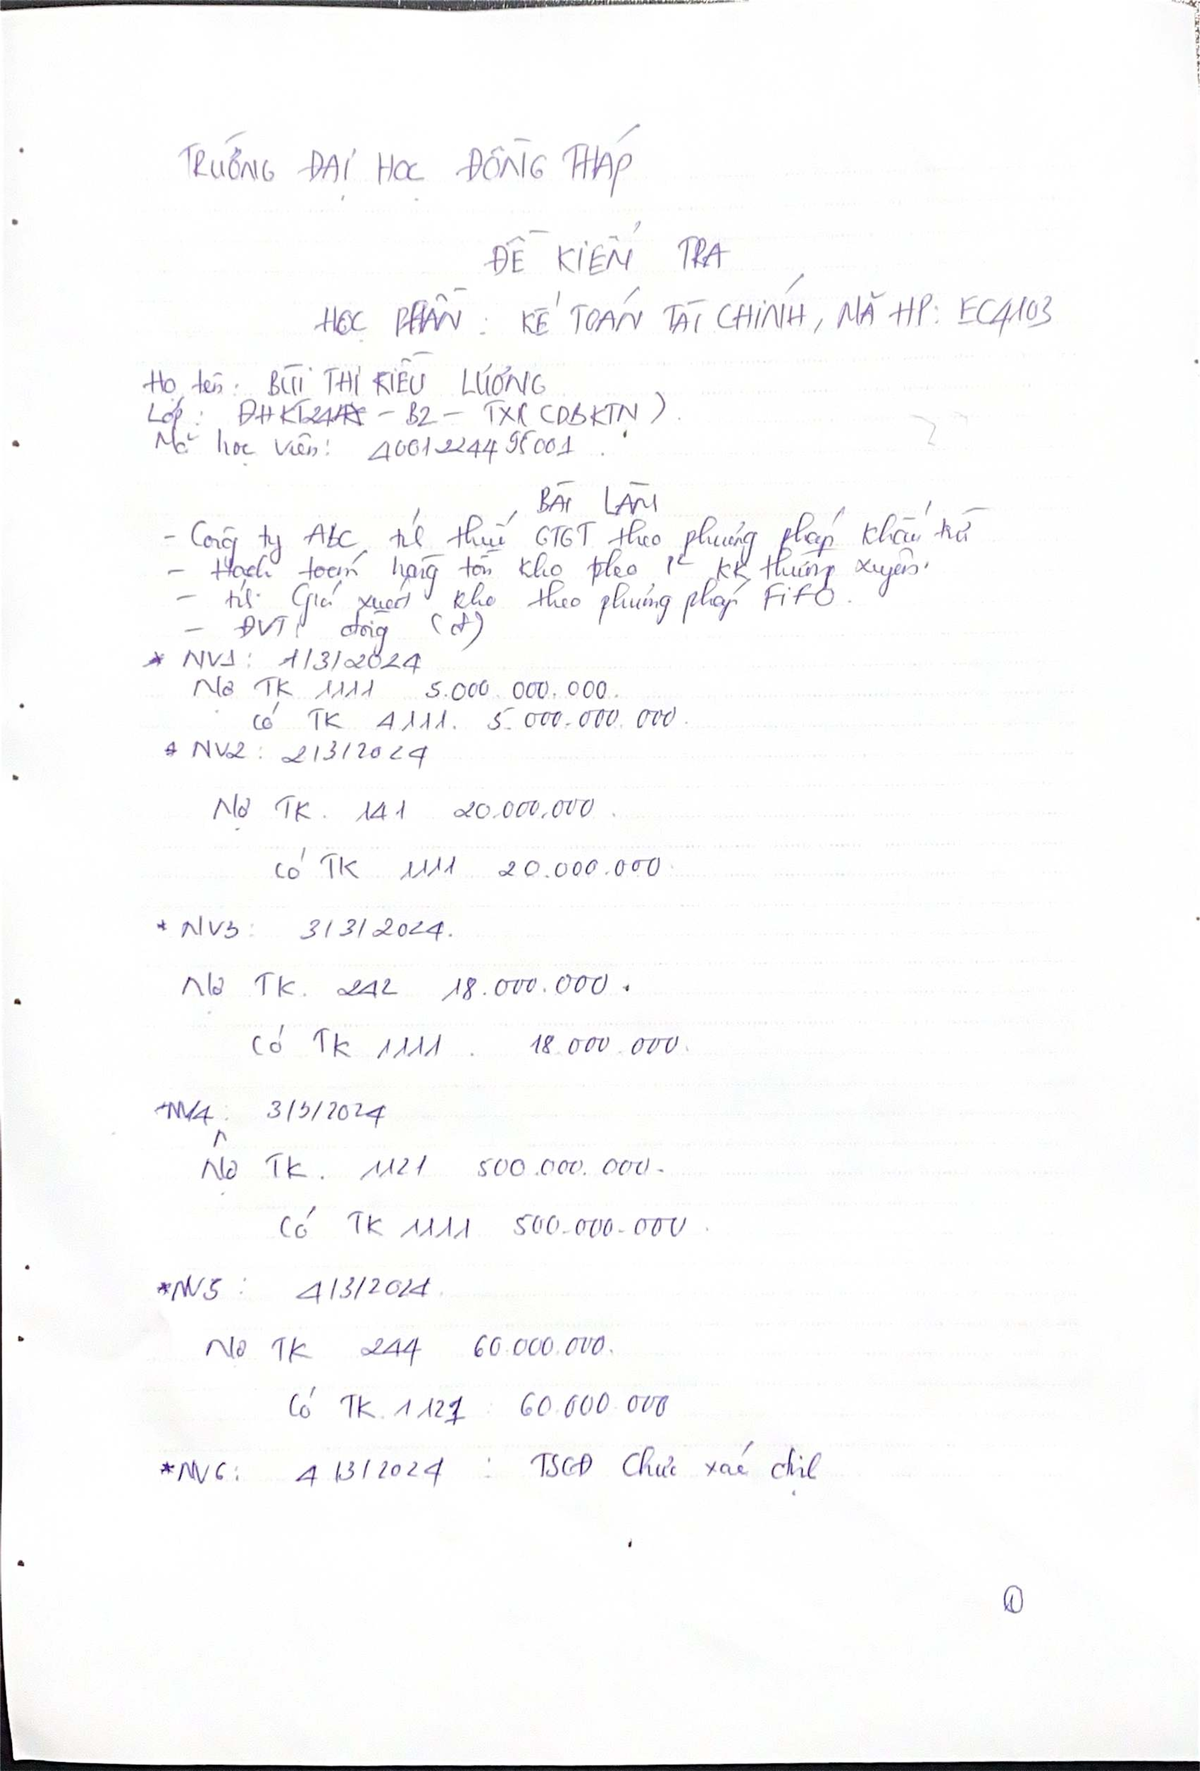 TRƯỜNG ĐẠI HỌC ĐỒNG THÁP
ĐỀ KIỂM TRA
HỌC PHẦN: KẾ TOÁN TÀI CHÍNH, MÃ HP: EC4103
Họ tên: BÙI THỊ KIỀU LƯƠNG
Lớp: - B2 - TXR (CDBKTN).
Mã học viên: 4601224495001.
BÀI LÀM
- Công ty ABC, thuế GTGT theo phương pháp khấu trừ
- Hạch toán hàng tồn kho theo KK thường xuyên.
- Giá xuất kho theo phương pháp FiFO.
- ĐVT: đồng (đ)
* NV1: 1/3/2024
Nợ TK 1111 5.000.000.000.
Có TK 4111. 5.000.000.000.
* NV2: 2/3/2024
Nợ TK. 141 20.000.000.
Có TK 1111 20.000.000.
* NV3: 3/3/2024.
Nợ TK. 242 18.000.000.
Có TK 1111. 18.000.000.
*NV4: 3/3/2024
Nợ TK. 1121 500.000.000.
Có TK 1111 500.000.000.
*NV5: 4/3/2024.
Nợ TK 244 60.000.000.
Có TK. 1121 60.000.000
*NV6: 4/3/2024: TSCĐ Chưa xác định
1